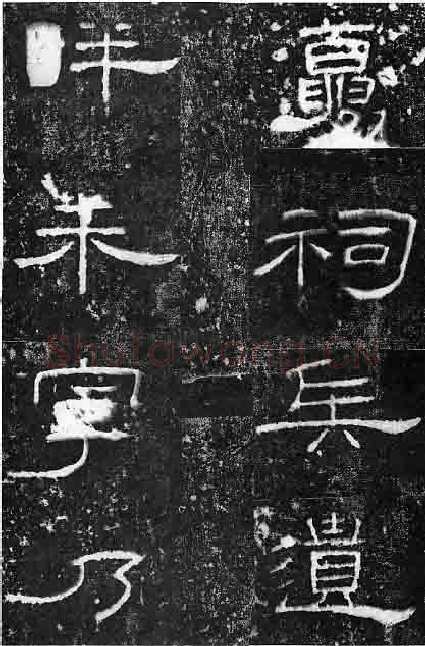 祠兵遺
畔未寧乃
Shufawang.CN